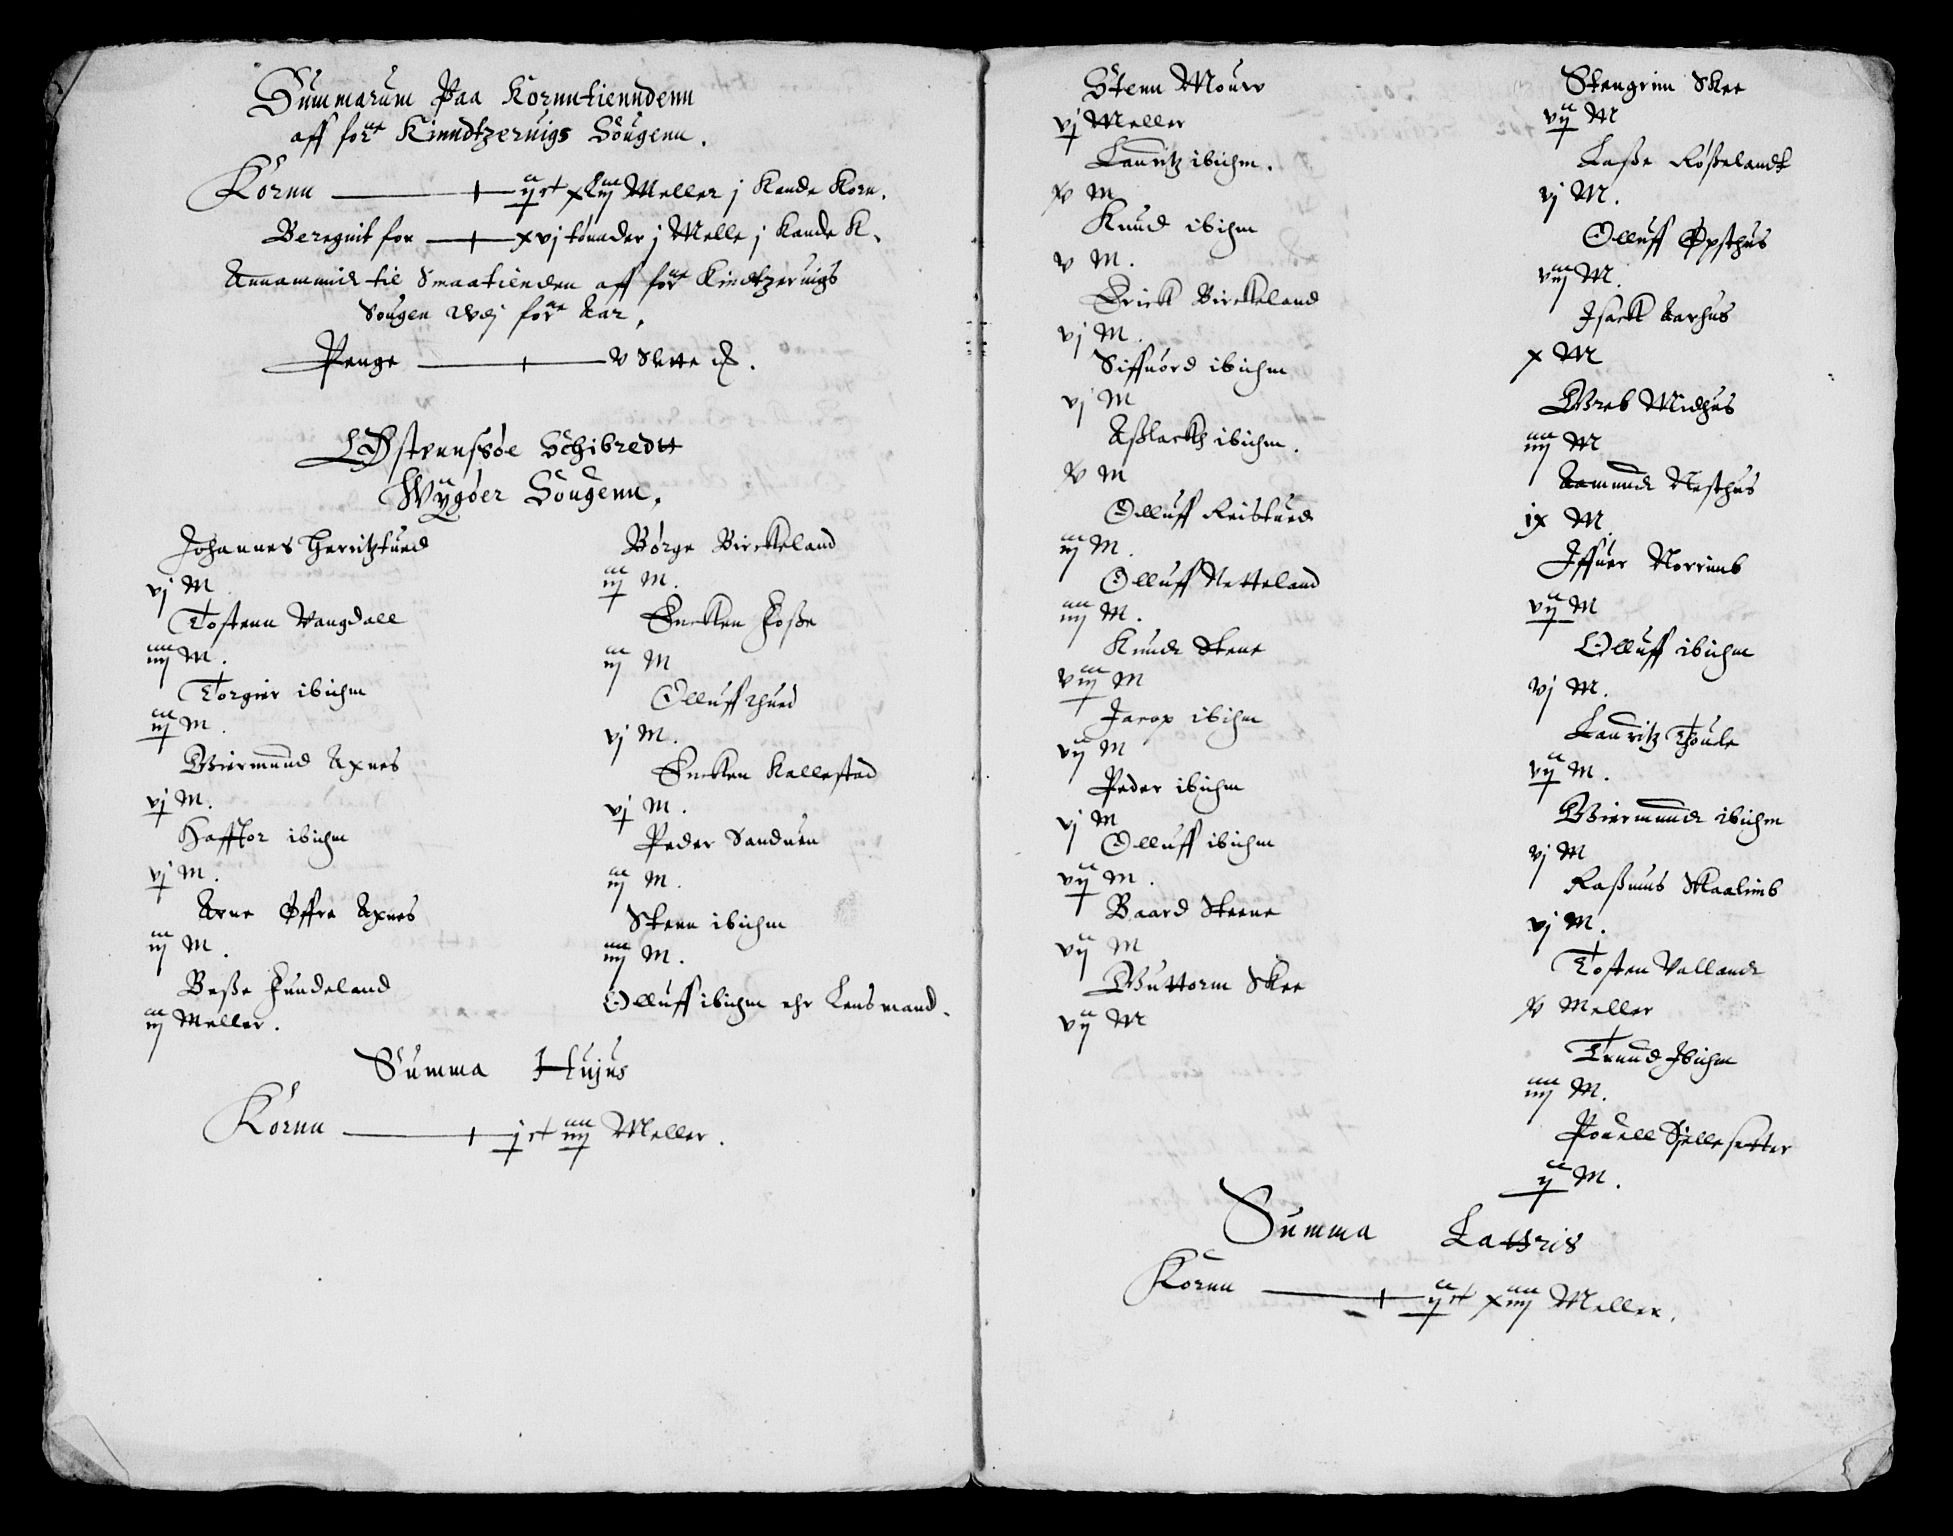 Summarum Paa Kornntienndenn
aff forne Kinndtzeruigs Sougenn.
Kornn — ij st xliij Meller j Kande Korn.
Beregnit for — xvj tønder j Melle j Kande K.
Annammidt til Smaatienden aff forne Kindtzeruigs
Sougen udj forne Aar.
Penge — v Slette d.
Østennsøe Schibredtt
Wigøer Sougenn.
Johannes Herritztued
vj M
Tostenn Vangdall
iiij M.
Torgier ibidm
iij M.
Giermund Axnes
vj M.
Hafftor ibidm
vj M.
Arne Øffre Axnes
iij M.
Beße Fundeland
iij Meller.
Børge Birckeland
iij M.
Encken Foße
iij M
Olluff Thued
vj M.
Encken Kallestad
vj M.
Peder Sanduen
iij M.
Stenn ibidm
iiij M.
Olluff ibidm ehr Lensmand.
Summa Hujus
Kornn — j st iiij Meller.
Stenn Mouw
vj Meller
Lauritz ibidm.
v M
Knud ibidm
v M.
Erick Birckeland
vj M.
Siffuord ibidm
vj M
Aßlackh ibidm.
v M
Olluff Reistued
iij M.
Olluff Netteland
iiij M.
Knud Stene
viij M
Jacop ibidm
vij M
Peder ibidm
vj M
Olluff ibidm
vij M.
Baard Steene
vij M
Guttorm Skee
vij M
Stengrim Skee
vij M
Laße Røßelandt
vj M.
Olluff Øpsthus
viij M.
Isack Aarhus
x M
Greb Midhus
iiij M
Aamund Nesthus
ix M.
Iffuer Norrimb
vij M
Olluff ibidm
vj M.
Lauritz Thoule
vij M.
Giermund ibidm
vj M
Raßmus Skaalimb
vj M.
Tosten Valland
v Meller
Trund Ibidm
iiij M.
Pouell Sjellesetter
ij M.
Summa Lattris
Kornn — ij st xiiij Meller.